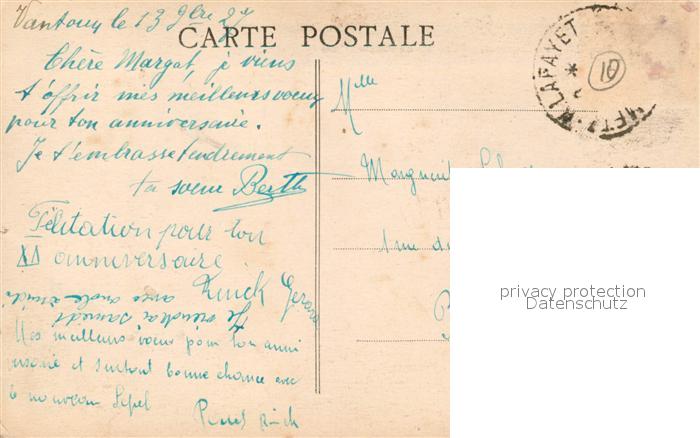 Vantoux le 13 9bre 27
CARTE POSTALE
Chère Margot, je viens
t'offrir mes meilleurs voeux
pour ton anniversaire.
Je t'embrasse tendrement
ta soeur Berthe
Félitation pour ton
XX anniversaire.
Rinck Gérard
Je viendrai samedi
avec oncle Emile
Mes meilleurs voeux pour ton anni
versaire et surtout bonne chance avec
le nouveau
Rinck
Mlle
Marguerite
1 rue du
LAFAYET
10
privacy protection
Datenschutz